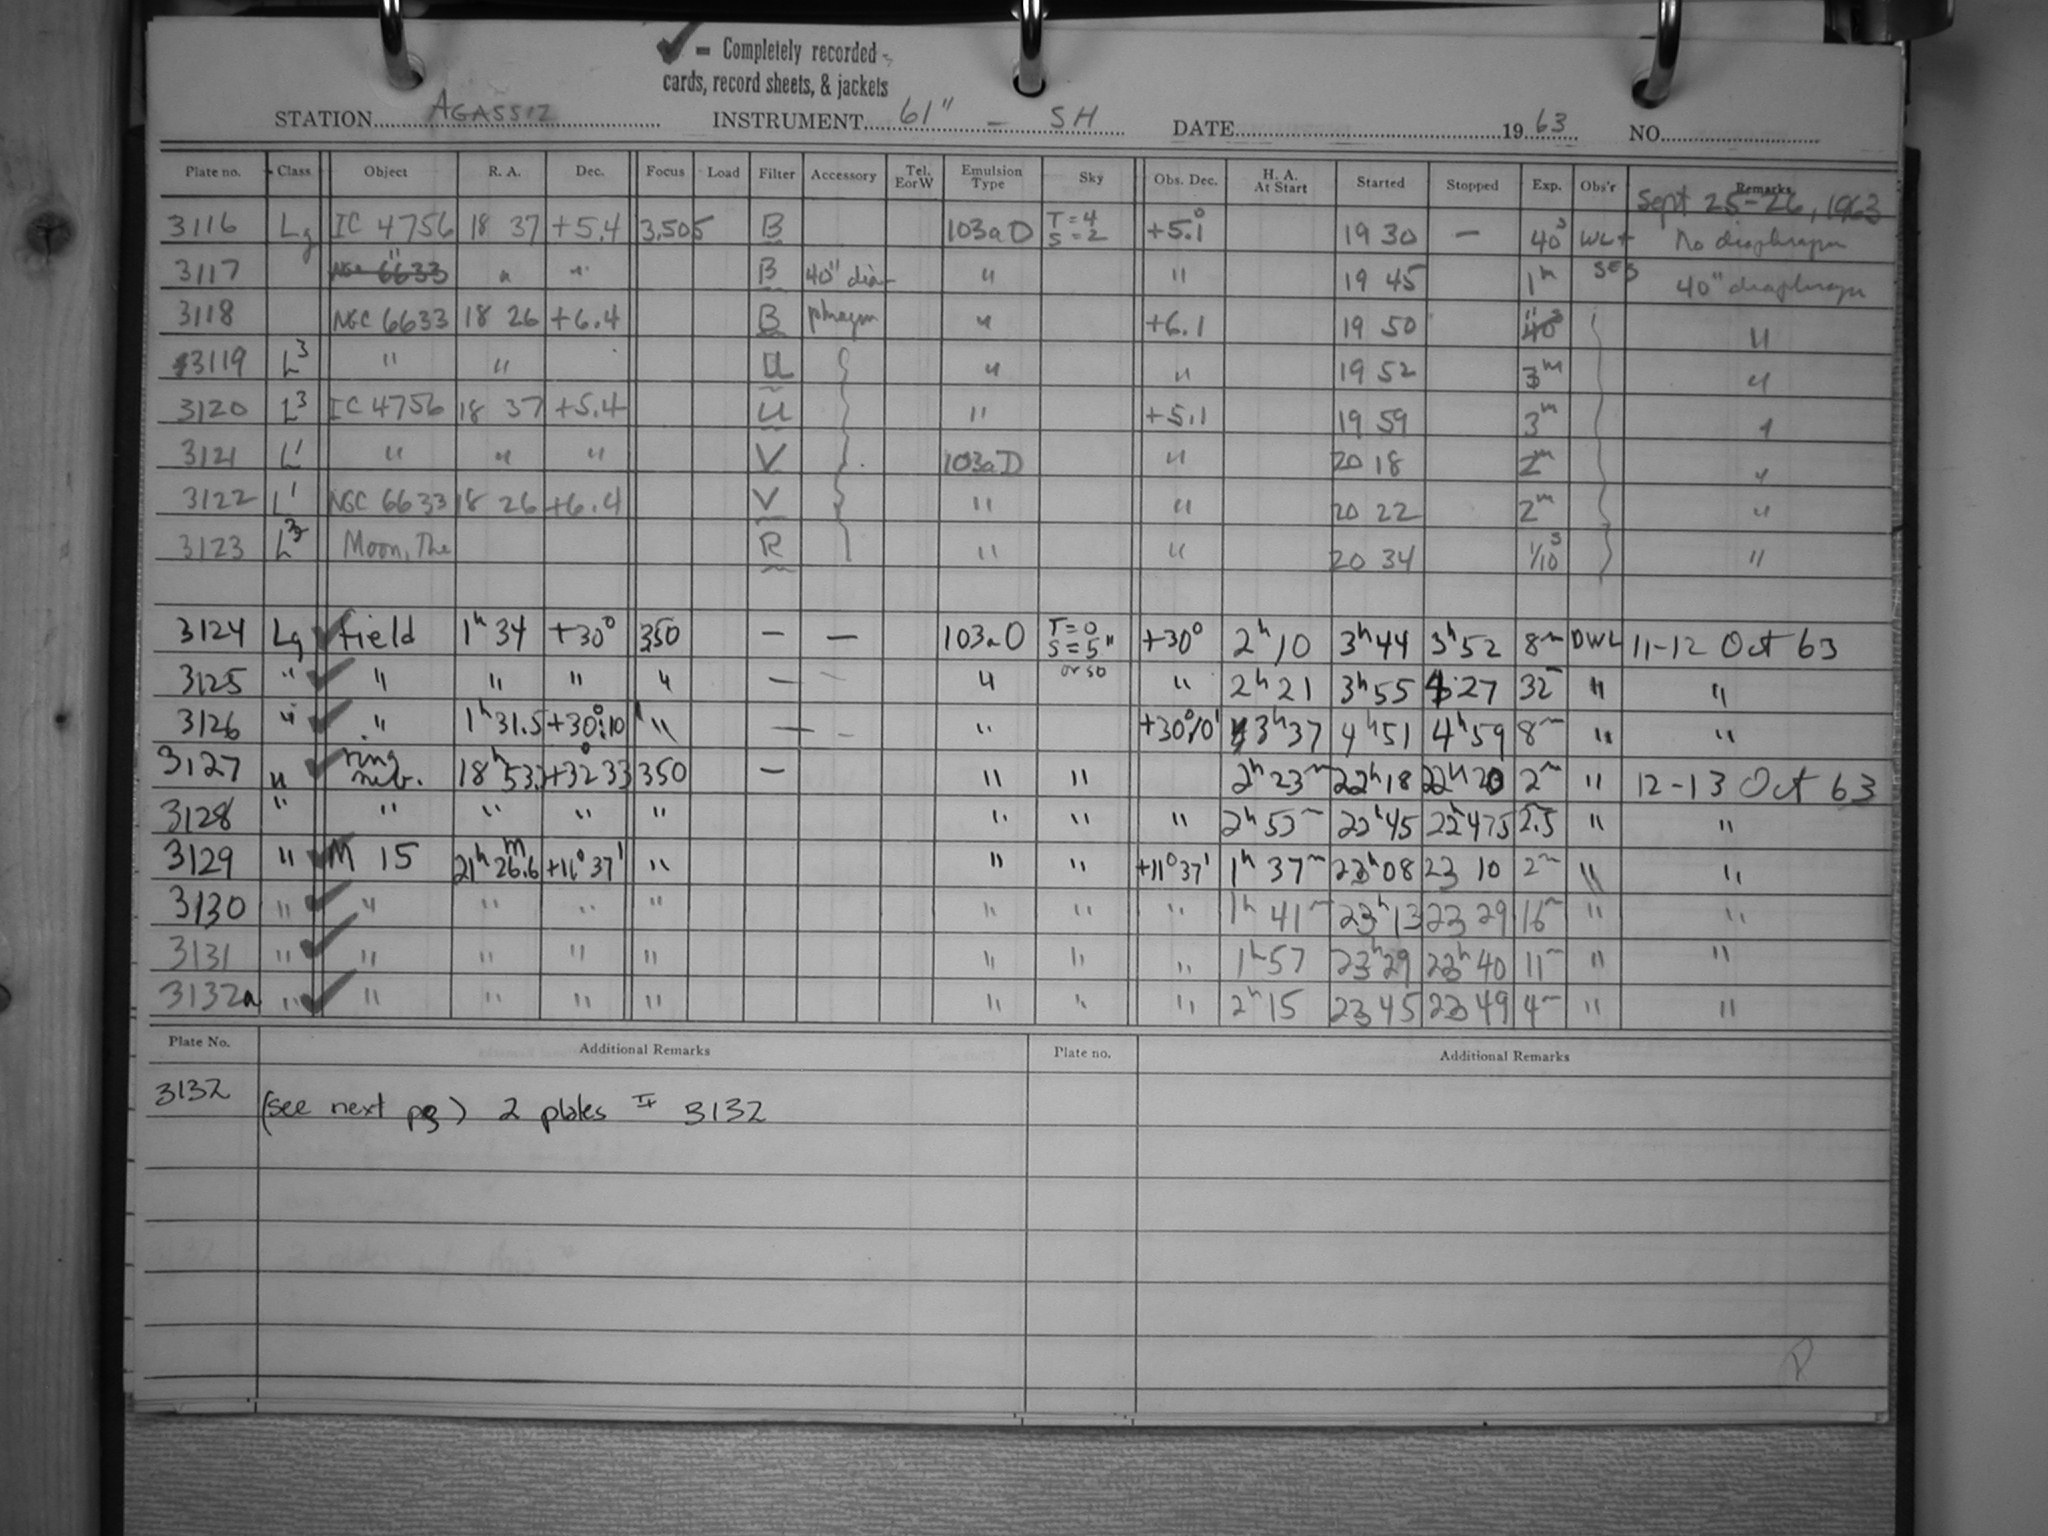 ✓ = Completely recorded -
cards, record sheets, & jackets
STATION AGASSIZ INSTRUMENT 61" - SH DATE 1963 NO.
Plate no. Class Object R. A. Dec. Focus Load Filter Accessory Tel. E or W Emulsion Type Sky Obs. Dec. H. A. At Start Started Stopped Exp. Obs'r Remarks
Sept 25-26, 1963
3116 Lg IC 4756 18 37 +5.4 3.505 B 103a D T=4 S=2 +5.1° 19 30 - 40s WL+ No diaphragm
3117 " NGC 6633 " " B 40" dia- " " 19 45 1m SES 40" diaphragm
3118 NGC 6633 18 26 +6.4 B phragm " +6.1 19 50 " 40s "
3119 L3 " " U " " 19 52 3m "
3120 L3 IC 4756 18 37 +5.4 U " +5.1 19 59 3m "
3121 L1 " " " V 103a D " 20 18 2m "
3122 L1 NGC 6633 18 26 +6.4 V " " 20 22 2m "
3123 L3 Moon, The R " " 20 34 1/10s "
3124 Lg ✓ field 1h 34 +30° 350 - - 103a O T=0 S=5" or so +30° 2h 10 3h 44 3h 52 8m DWL 11-12 Oct 63
3125 " ✓ " " " " - - " " 2h 21 3h 55 4 27 32 " "
3126 " ✓ " 1h 31.5 +30°10 " - - " +30°10' 3h 37 4h 51 4h 59 8m " "
3127 " ✓ ring neb. 18h 53. +32° 33 350 - " " 2h 23m 22h 18 22h 20 2m " 12-13 Oct 63
3128 " " " " " " " " 2h 53m 22h 45 22 475 2.5 " "
3129 " ✓ M 15 21h 26.6m +11° 37' " " " +11° 37' 1h 37m 23h 08 23 10 2m " "
3130 " ✓ " " " " " " " 1h 41m 23h 13 23 29 16m " "
3131 " ✓ " " " " " " " 1h 57 23h 29 23h 40 11m " "
3132a " ✓ " " " " " " " 2h 15 23 45 23 49 4m " "
Plate No. Additional Remarks Plate no. Additional Remarks
3132 (see next pg) 2 plates # 3132